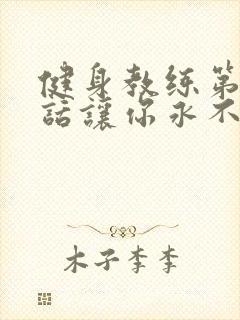 健身教练第
話讓你永不
木子李李